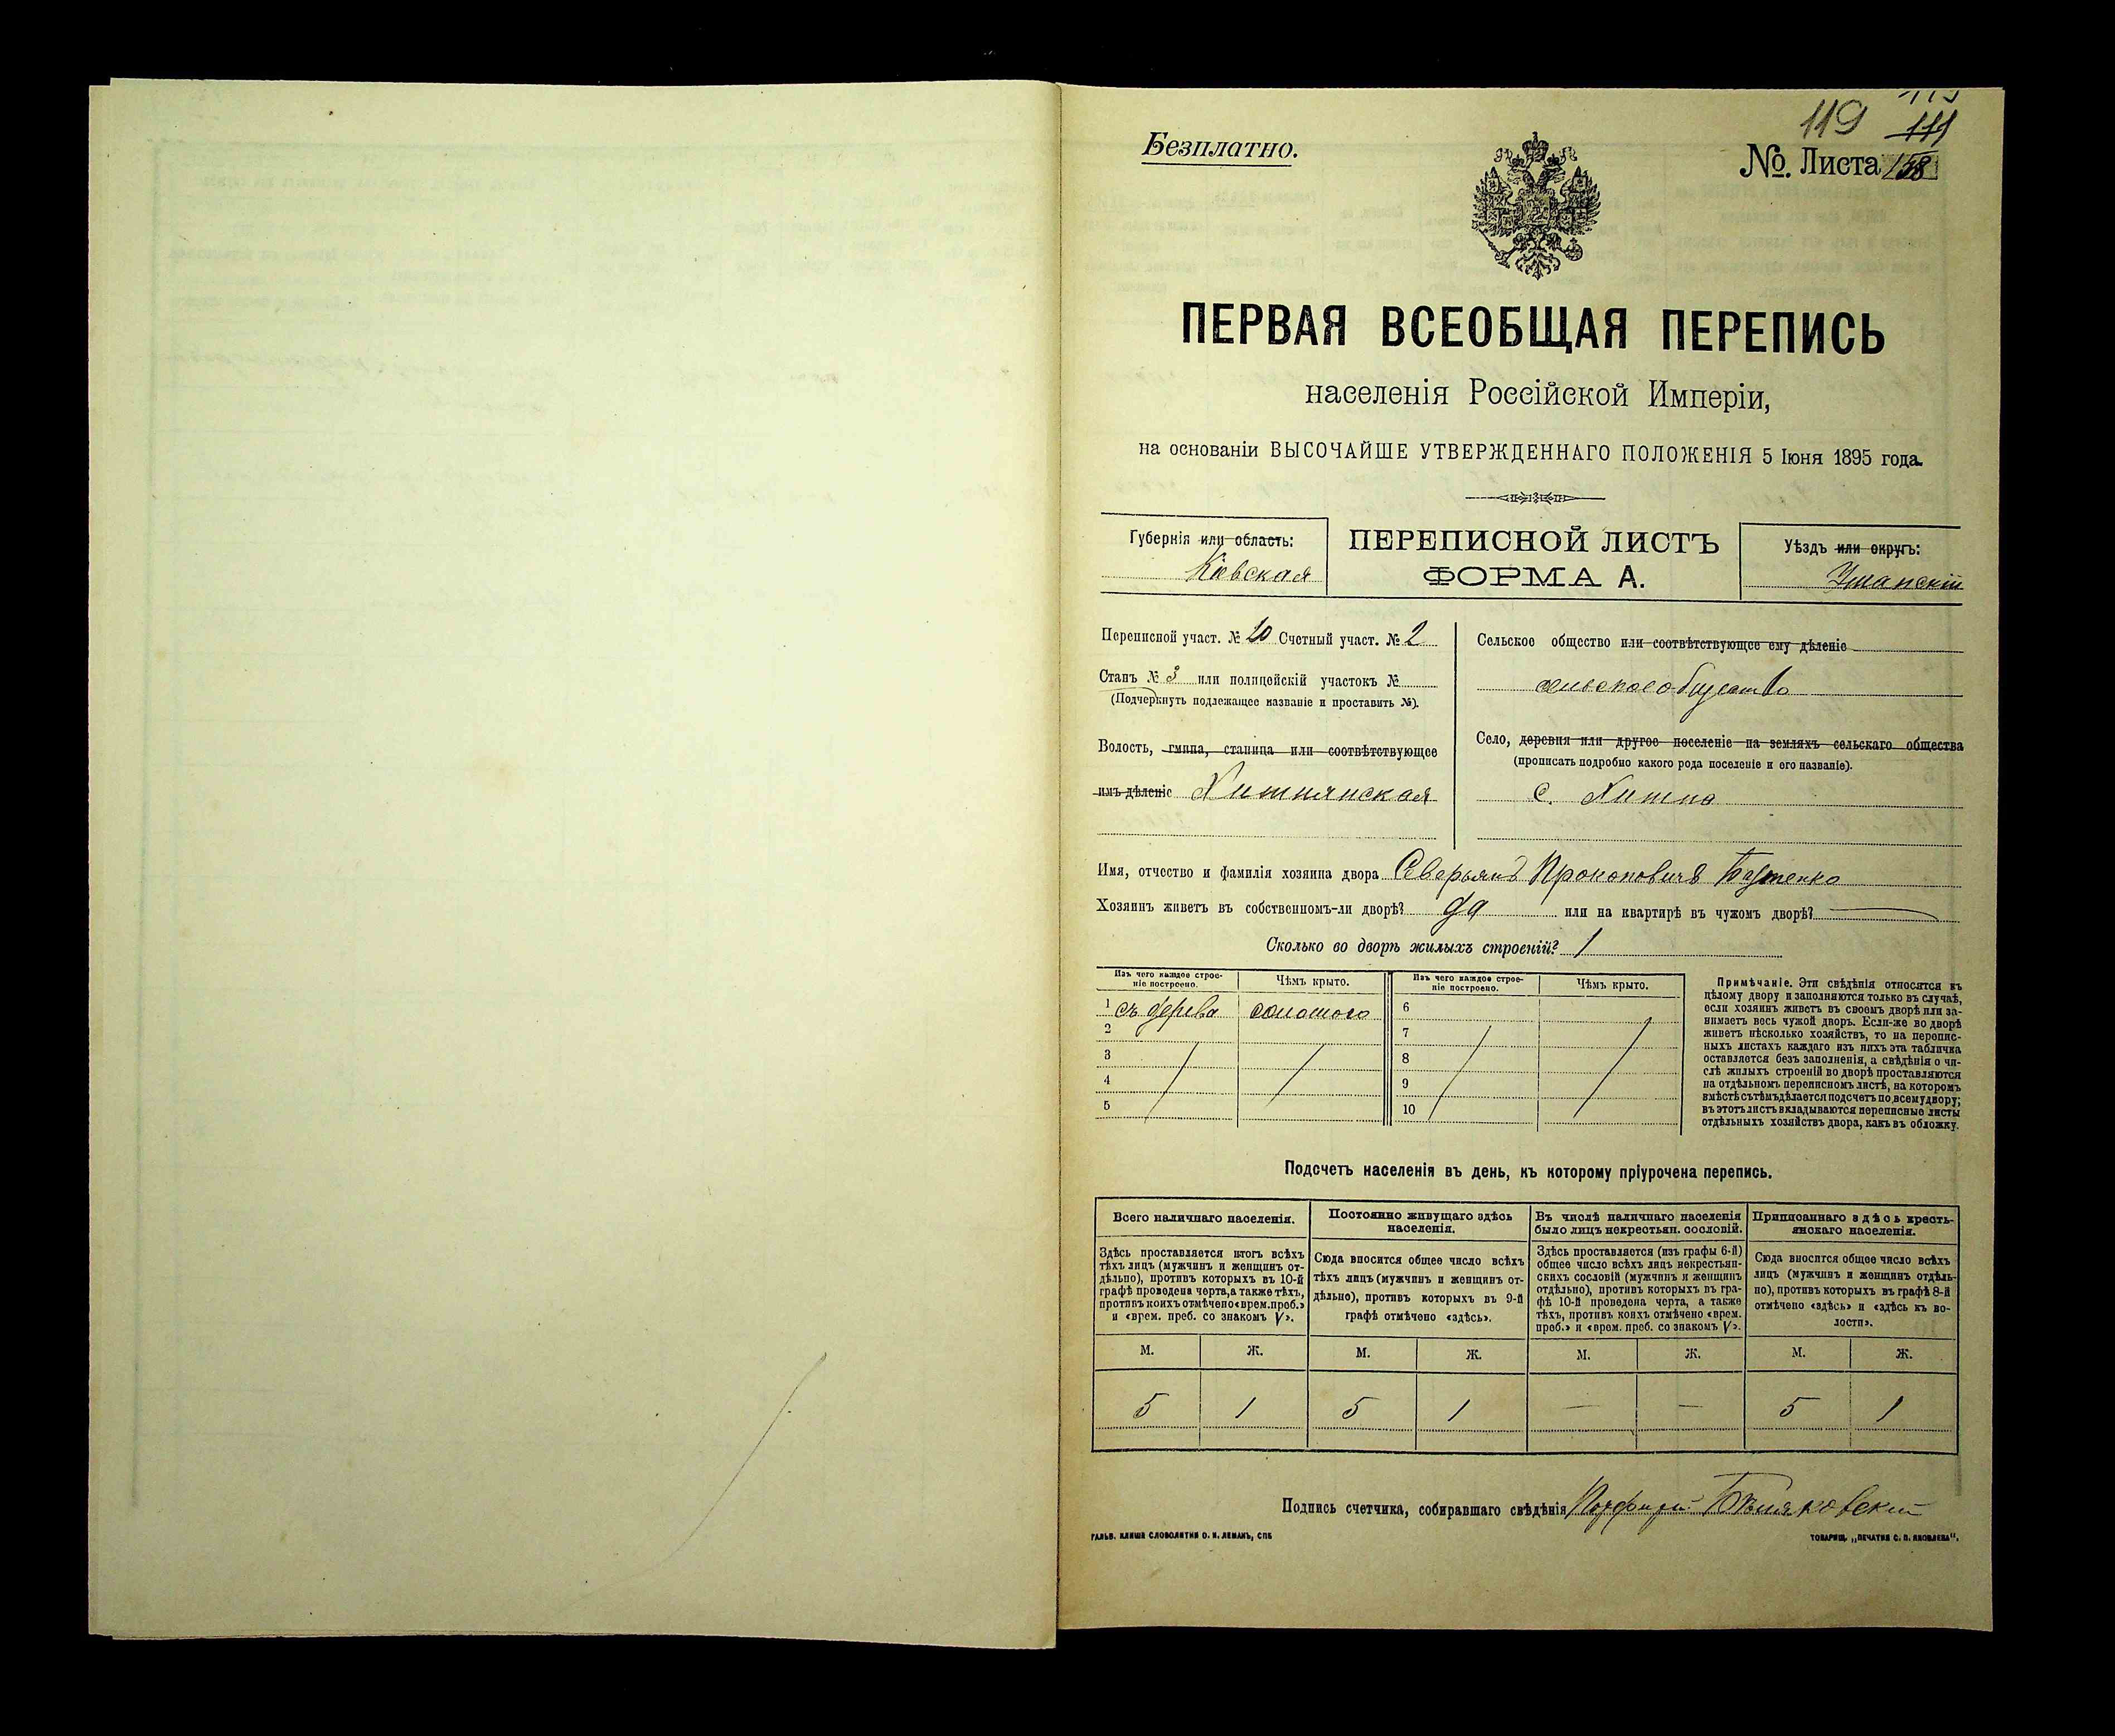 119
111
Безплатно.
№. Листа 158
ПЕРВАЯ ВСЕОБЩАЯ ПЕРЕПИСЬ
населенія Россійской Имперіи,
на основаніи ВЫСОЧАЙШЕ УТВЕРЖДЕННАГО ПОЛОЖЕНІЯ 5 Іюня 1895 года.
Губернія или область:
Кіевская
ПЕРЕПИСНОЙ ЛИСТЪ
ФОРМА А.
Уѣздъ или округъ:
Уманскій
Переписной участ. № 10 Счетный участ. № 2
Станъ № 3 или полицейскій участокъ №
(Подчеркнуть подлежащее названіе и проставить №).
Волость, гмина, станица или соотвѣтствующее
имъ дѣленіе Хижнянская
Сельское общество или соотвѣтствующее ему дѣленіе
сельское общество
Село, деревня или другое поселеніе на земляхъ сельскаго общества
(прописать подробно какого рода поселеніе и его названіе).
с. Хижна
Имя, отчество и фамилія хозяина двора Северьянъ Прокоповичъ Бутенко
Хозяинъ живетъ въ собственномъ-ли дворѣ? да или на квартирѣ въ чужомъ дворѣ?
Сколько во дворѣ жилыхъ строеній? 1
Изъ чего каждое строе-
ніе построено.
Чѣмъ крыто.
Изъ чего каждое строе-
ніе построено.
Чѣмъ крыто.
1 съ дерева соломою 6
2 7
3 8
4 9
5 10
Примѣчаніе. Эти свѣдѣнія относятся къ
цѣлому двору и заполняются только въ случаѣ,
если хозяинъ живетъ въ своемъ дворѣ или за-
нимаетъ весь чужой дворъ. Если-же во дворѣ
живетъ нѣсколько хозяйствъ, то на перепис-
ныхъ листахъ каждаго изъ нихъ эта табличка
оставляется безъ заполненія, а свѣдѣнія о чи-
слѣ жилыхъ строеній во дворѣ проставляются
на отдѣльномъ переписномъ листѣ, на которомъ
вмѣстѣ съ тѣмъ дѣлается подсчетъ по всему двору;
въ этотъ листъ вкладываются переписные листы
отдѣльныхъ хозяйствъ двора, какъ въ обложку.
Подсчетъ населенія въ день, къ которому пріурочена перепись.
Всего наличнаго населенія.
Здѣсь проставляется итогъ всѣхъ
тѣхъ лицъ (мужчинъ и женщинъ от-
дѣльно), противъ которыхъ въ 10-й
графѣ проведена черта, а также тѣхъ,
противъ коихъ отмѣчено «врем. преб.»
и «врем. преб. со знакомъ V».
Постоянно живущаго здѣсь
населенія.
Сюда вносится общее число всѣхъ
тѣхъ лицъ (мужчинъ и женщинъ от-
дѣльно), противъ которыхъ въ 9-й
графѣ отмѣчено «здѣсь».
Въ числѣ наличнаго населенія
было лицъ некрестьян. сословій.
Здѣсь проставляется (изъ графы 6-й)
общее число всѣхъ лицъ некрестьян-
скихъ сословій (мужчинъ и женщинъ
отдѣльно), противъ которыхъ въ гра-
фѣ 10-й проведена черта, а также
тѣхъ, противъ коихъ отмѣчено «врем.
преб.» и «врем. преб. со знакомъ V».
Приписаннаго здѣсь кресть-
янскаго населенія.
Сюда вносится общее число всѣхъ
лицъ (мужчинъ и женщинъ отдѣль-
но), противъ которыхъ въ графѣ 8-й
отмѣчено «здѣсь» и «здѣсь къ во-
лости».
М. Ж. М. Ж. М. Ж. М. Ж.
5 1 5 1 — — 5 1
Подпись счетчика, собиравшаго свѣдѣнія Порфирій
ГАЛЬВ. КЛИШЕ СЛОВОЛИТНИ О. И. ЛЕМАНЪ, СПБ
ТОВАРИЩ. „ПЕЧАТНЯ С. П. ЯКОВЛЕВА".